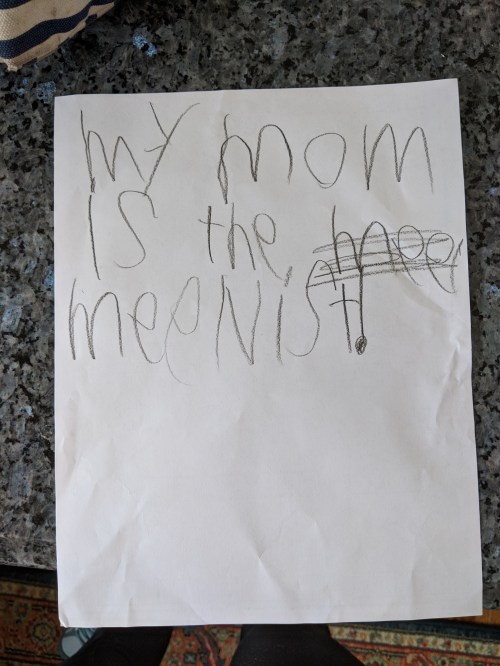 my mom
is the mee
meeNist!